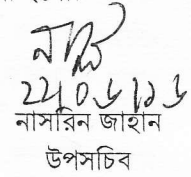 ২২/০৬/১৬
নাসরিন জাহান
উপসচিব